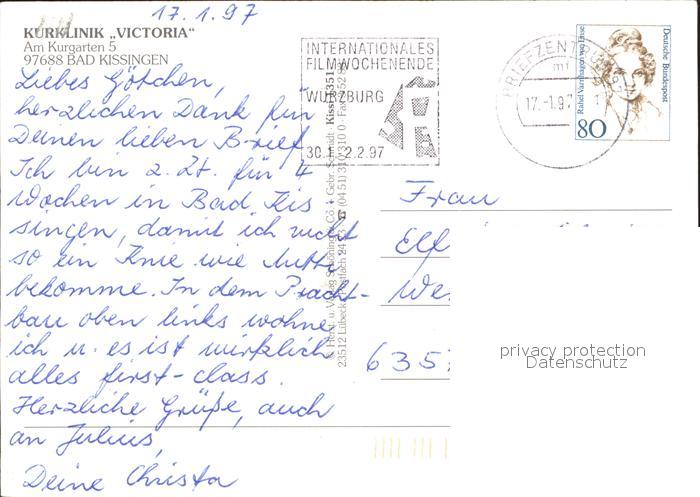 17.1.97
KURKLINIK „VICTORIA“
Am Kurgarten 5
97688 BAD KISSINGEN
Liebes Götchen,
herzlichen Dank für
Deinen lieben Brief.
Ich bin z. Zt. für 4
Wochen in Bad Kis
singen, damit ich nicht
so ein Knie wie Mutti
bekomme. In dem Pracht-
bau oben links wohne
ich u. es ist wirklich
alles first-class.
Herzliche Grüße, auch
an Julius,
Deine Christa
INTERNATIONALES
FILMWOCHENENDE
WÜRZBURG
30.1.-2.2.97
BRIEFZENTRUM
17.-1.97
Deutsche Bundespost
Rahel Varnhagen von Ense
80
© Herst. u. Verlag Schöning & Co. + Gebr. Schmidt
23512 Lübeck, Postfach
Frau
Elf
We
635
privacy protection
Datenschutz